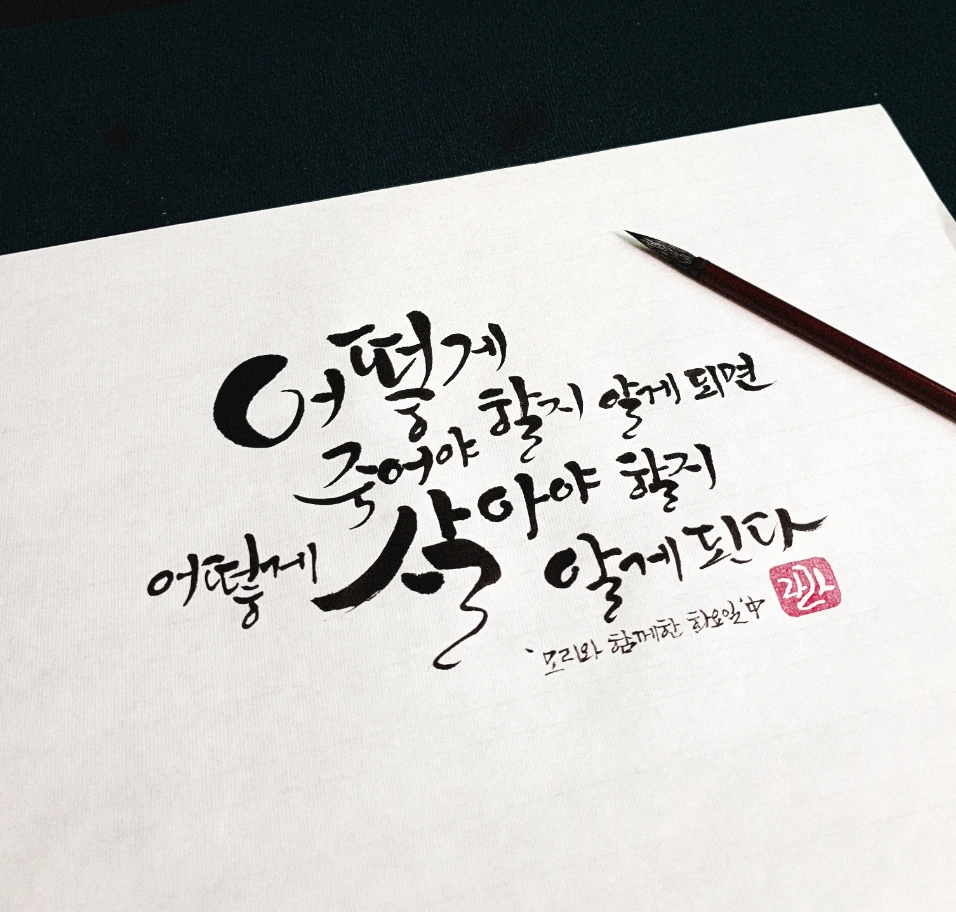 어떻게
죽어야 할지 알게 되면
어떻게 살아야 할지
알게 된다
'모리와 함께한 화요일' 中